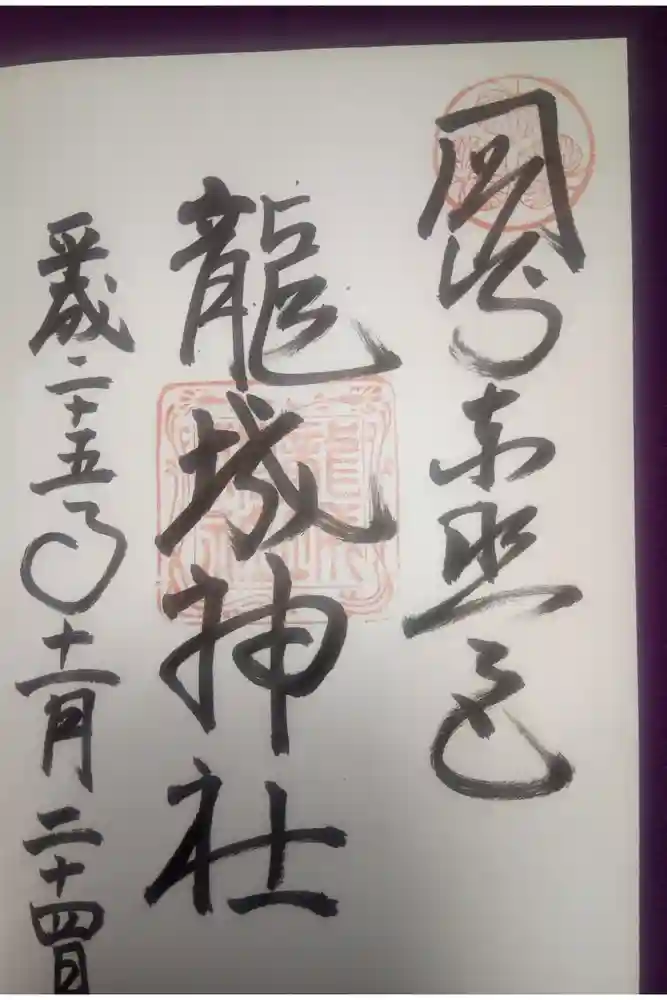 岡崎東照宮
龍城神社
平成二十五年十一月二十四日